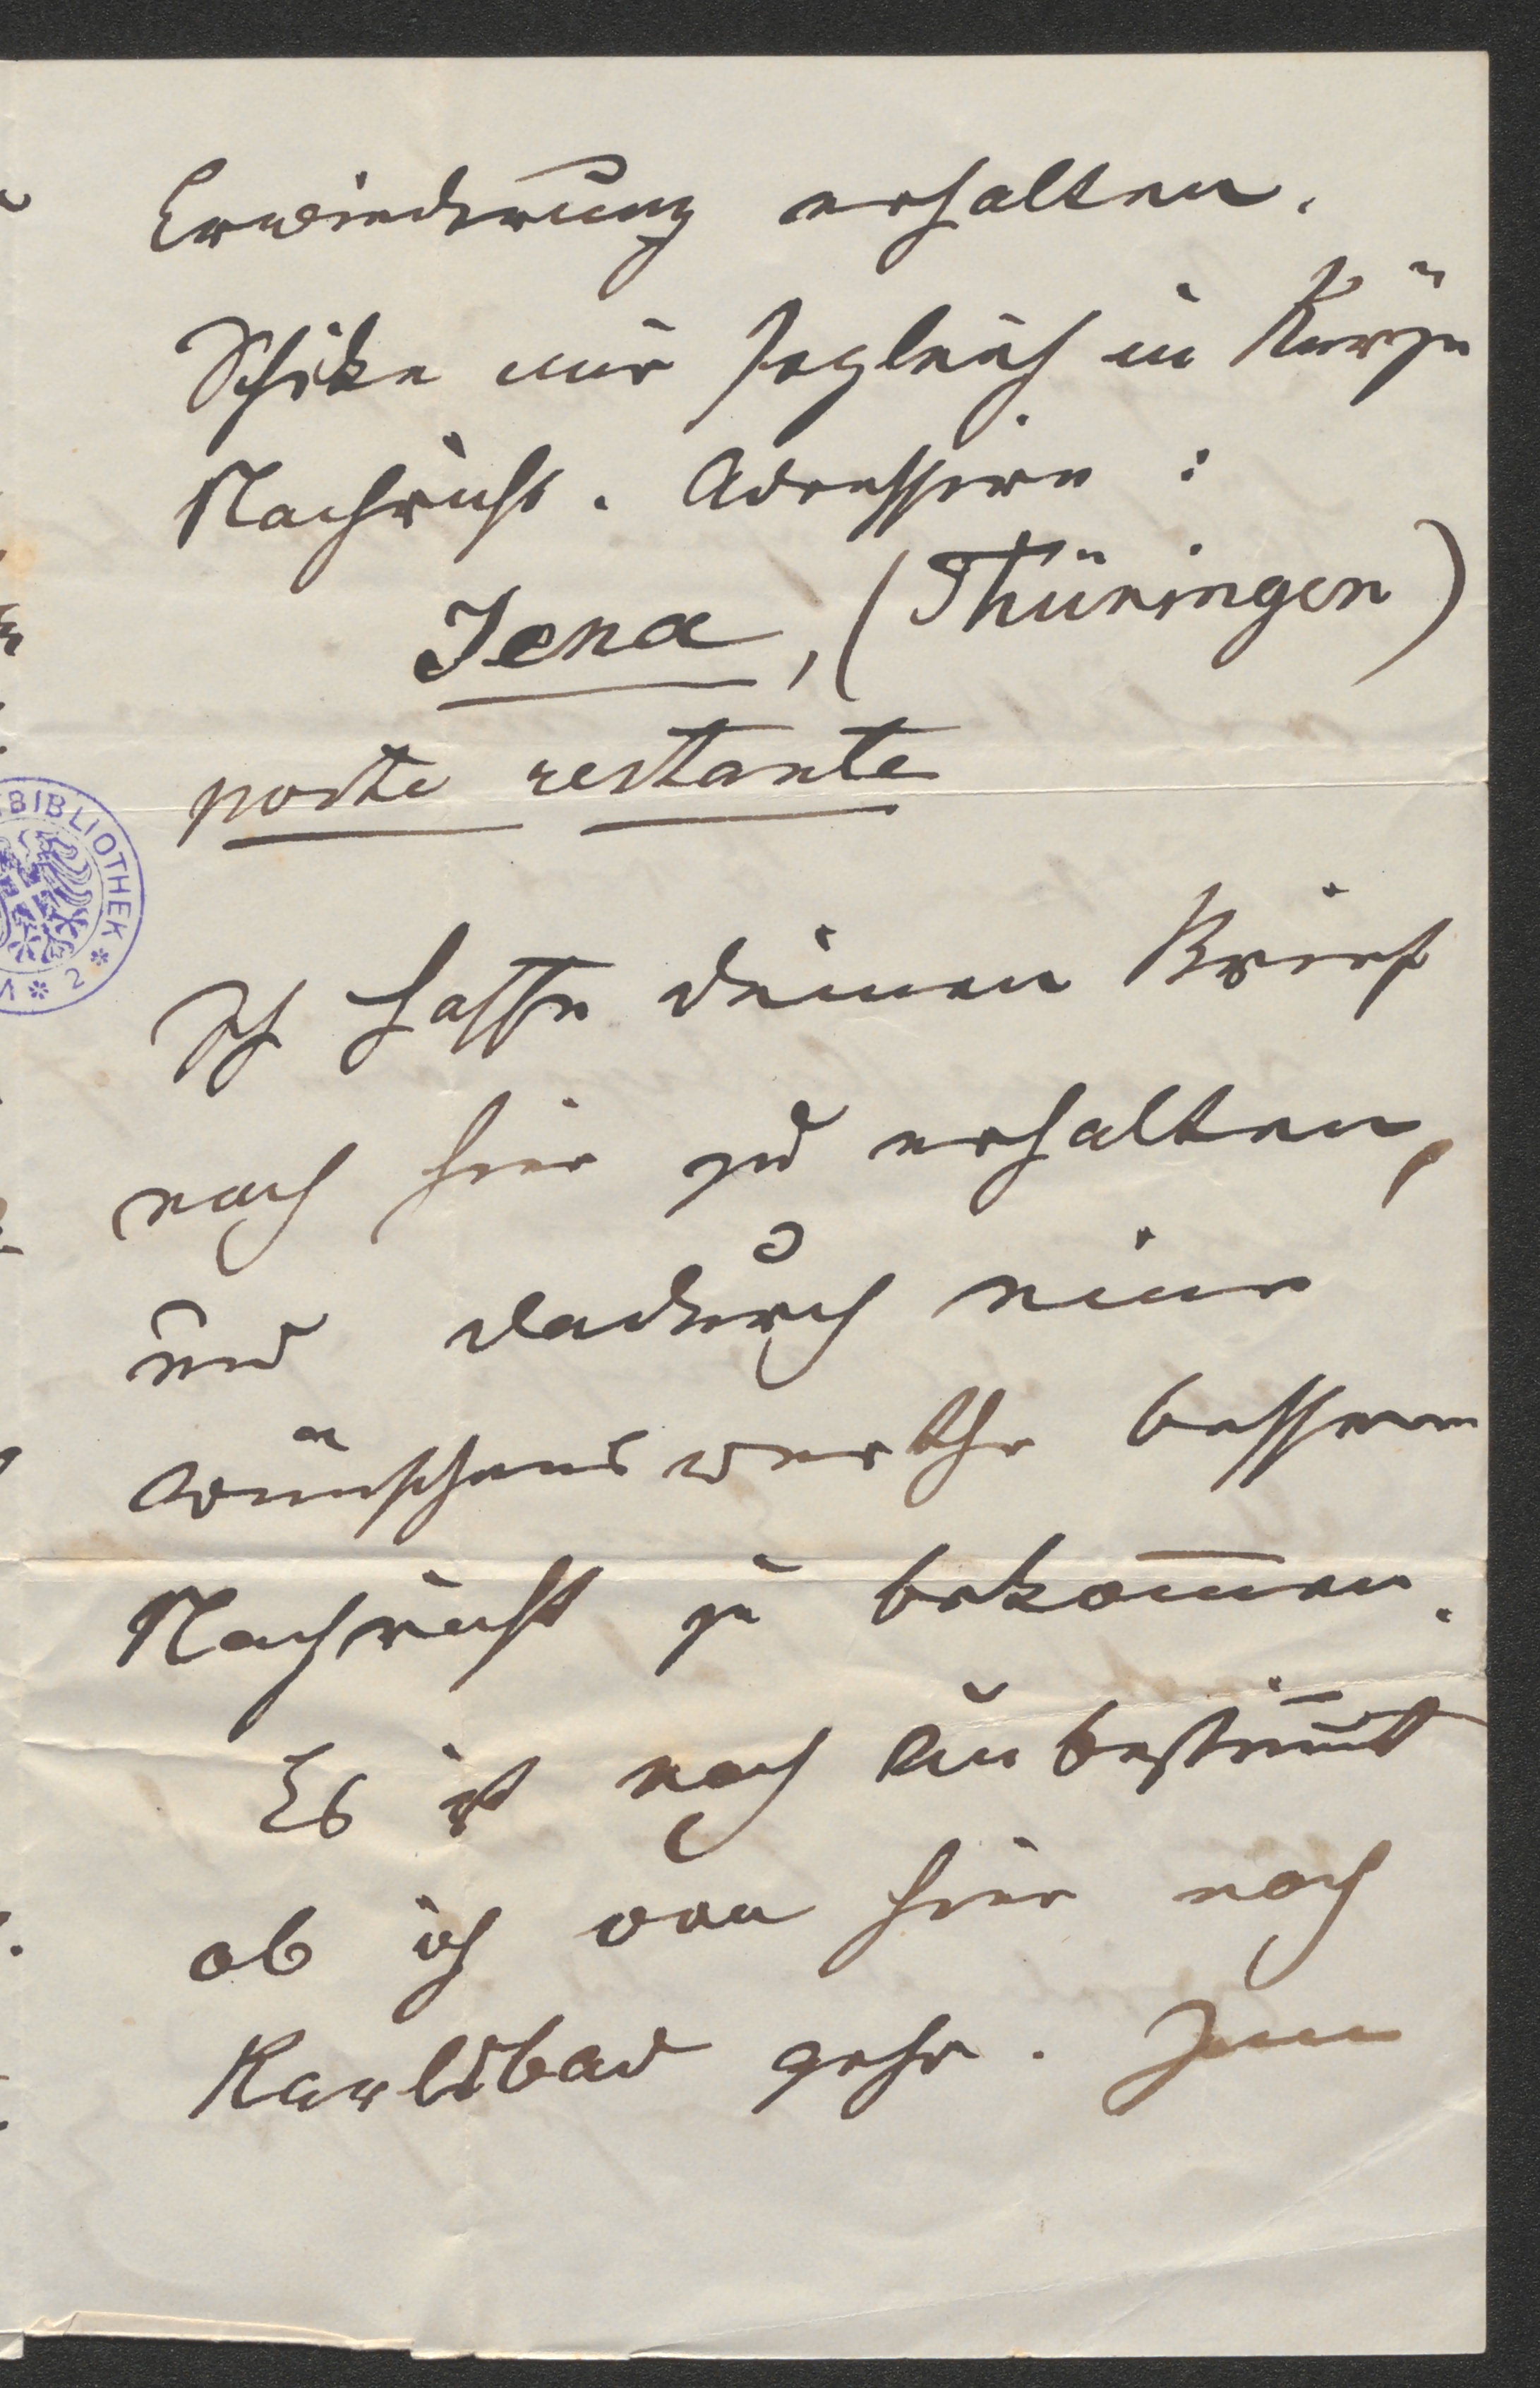 Erwiederung erhalten.
Schike mir sogleich in Kürze
Nachricht. Adressire:
Jena, (Thüringen)
poste restante
BIBLIOTHEK
Ich hoffte deinen Brief
noch hier zu erhalten,
und dadurch eine
wünschenswerthe bessere
Nachricht zu bekom̅en.
Es ist noch unbestim̅t
ob ich von hier nach
Karlsbad gehe.